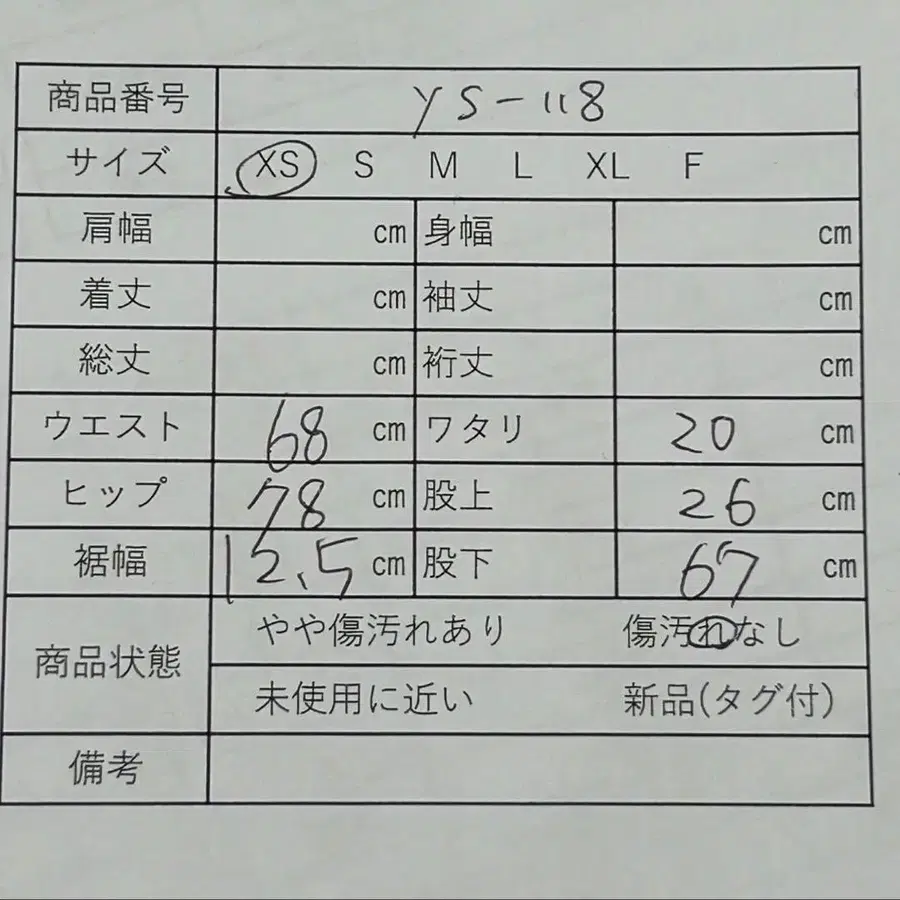 商品番号 YS-118
サイズ XS S M L XL F
肩幅 cm 身幅 cm
着丈 cm 袖丈 cm
総丈 cm 裄丈 cm
ウエスト 68 cm ワタリ 20 cm
ヒップ 78 cm 股上 26 cm
裾幅 12.5 cm 股下 67 cm
商品状態 やや傷汚れあり 傷汚れなし
未使用に近い 新品(タグ付)
備考